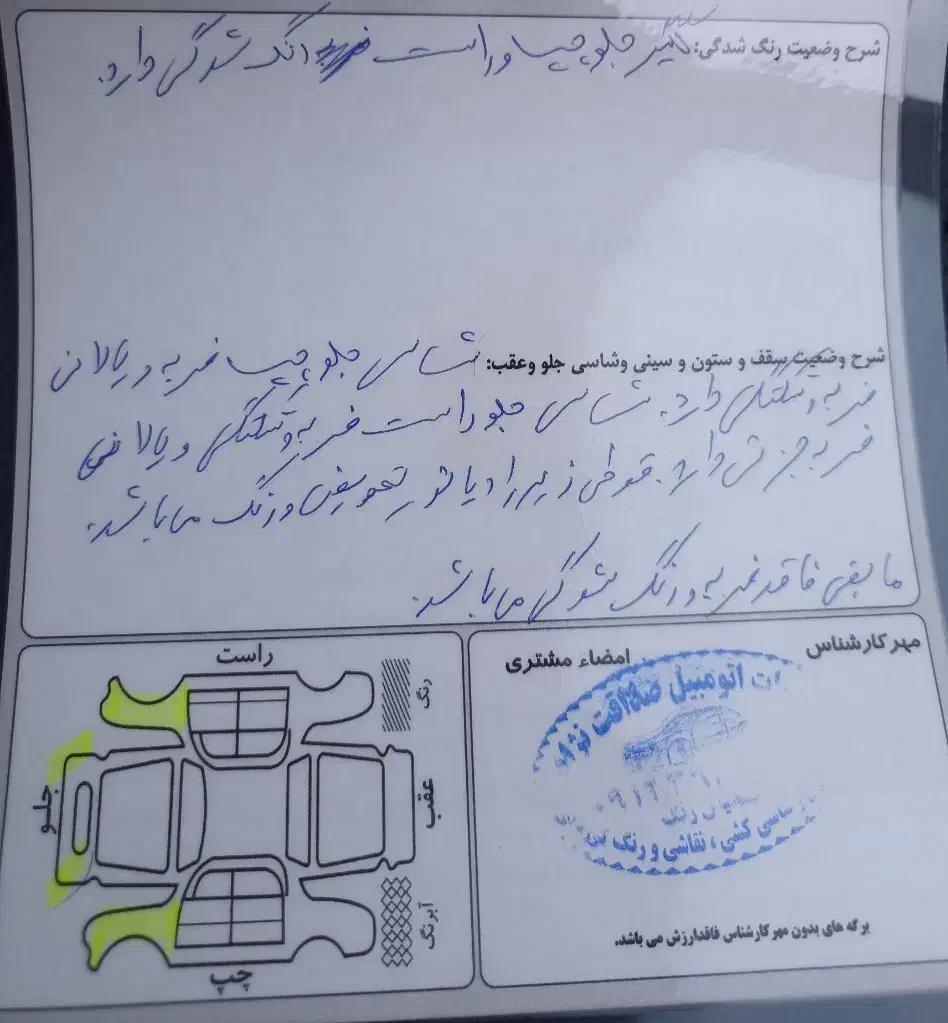 شرح وضعیت رنگ شدگی: گلگیر جلو چپ و راست رنگ شدگی دارد.
شرح وضعیت سقف و ستون و سینی وشاسی جلو وعقب: شاسی جلو چپ ضربه و
ضربه دارد. شاسی جلو راست ضربه و
ضربه دارد. قوطی زیر رادیاتور تعویض و رنگ می باشد.
مابقی فاقد ضربه و رنگ شدگی می باشد.
مهر کارشناس
امضاء مشتری
اتومبیل صداقت
رنگ
کشی ، نقاشی و رنگ
برگه های بدون مهر کارشناس فاقدارزش می باشد.
راست
رنگ
جلو
عقب
آبرنگ
چپ